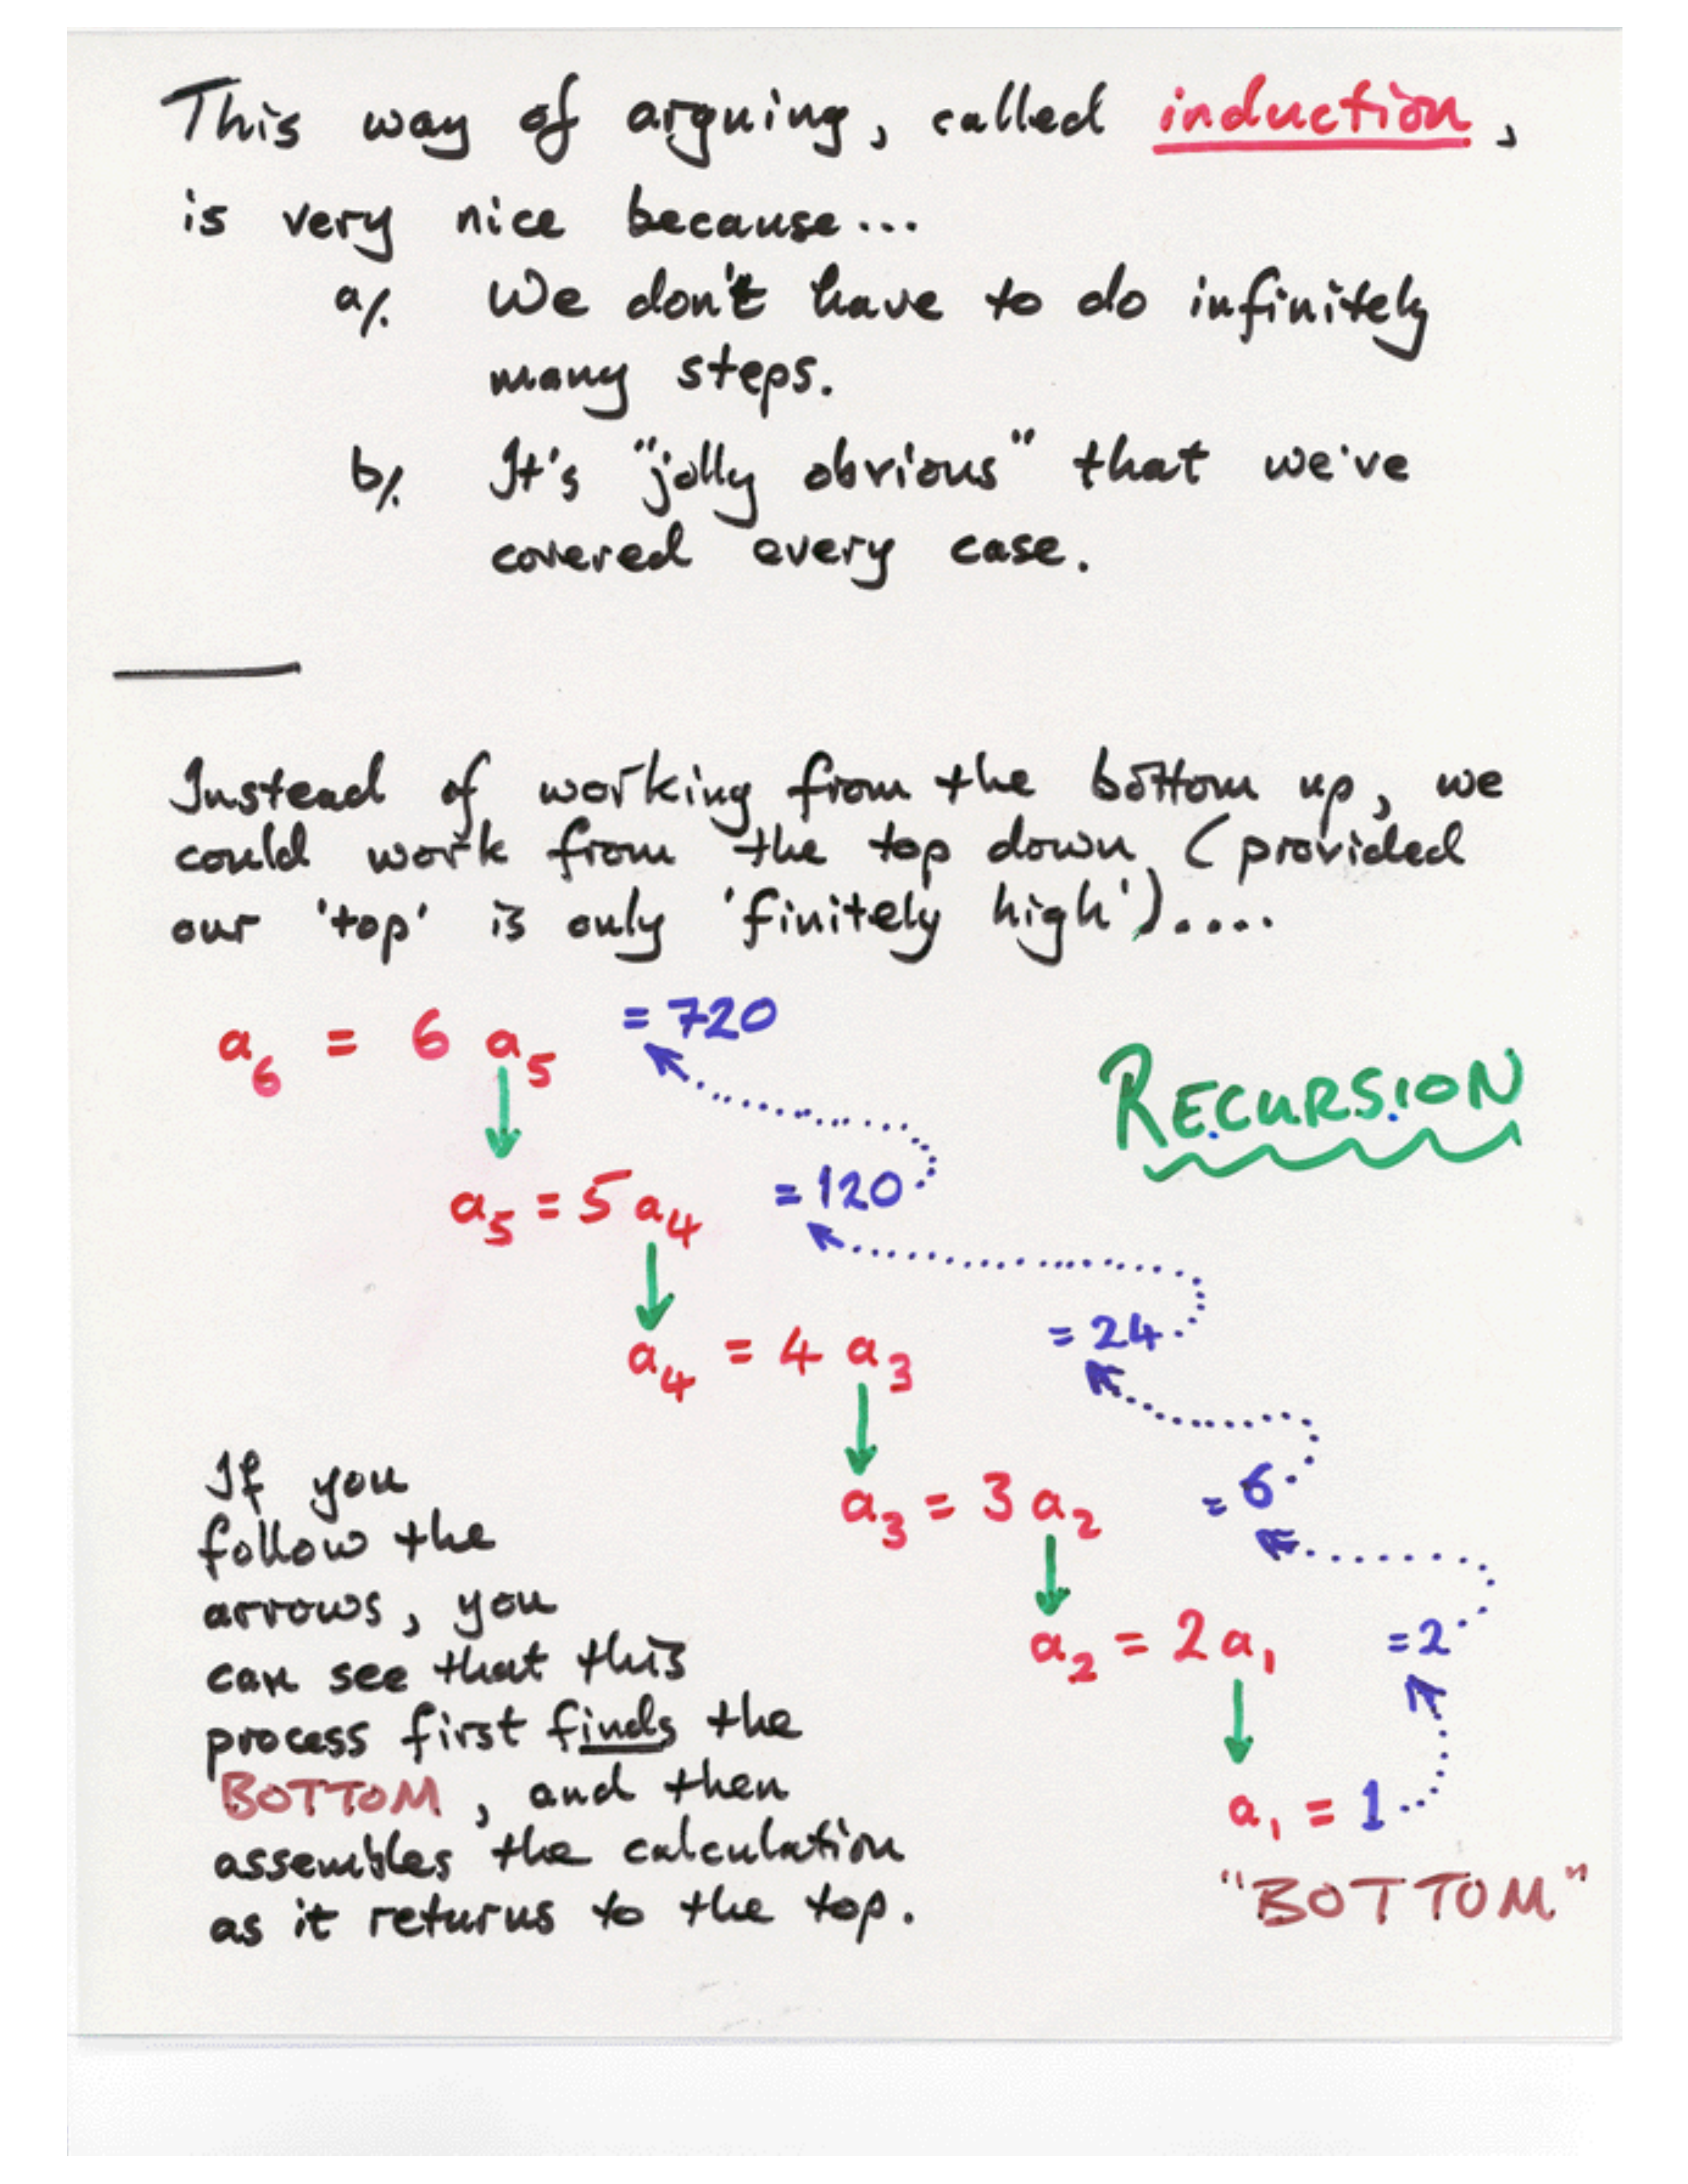 This way of arguing, called induction,
is very nice because...
a/. We don't have to do infinitely
many steps.
b/. It's "jolly obvious" that we've
covered every case.
Instead of working from the bottom up, we
could work from the top down (provided
our 'top' is only 'finitely high')....
a₆ = 6 a₅ = 720
RECURSION
a₅ = 5 a₄ = 120
a₄ = 4 a₃ = 24
a₃ = 3 a₂ = 6
a₂ = 2 a₁ = 2
a₁ = 1
"BOTTOM"
If you
follow the
arrows, you
can see that this
process first finds the
BOTTOM, and then
assembles the calculation
as it returns to the top.